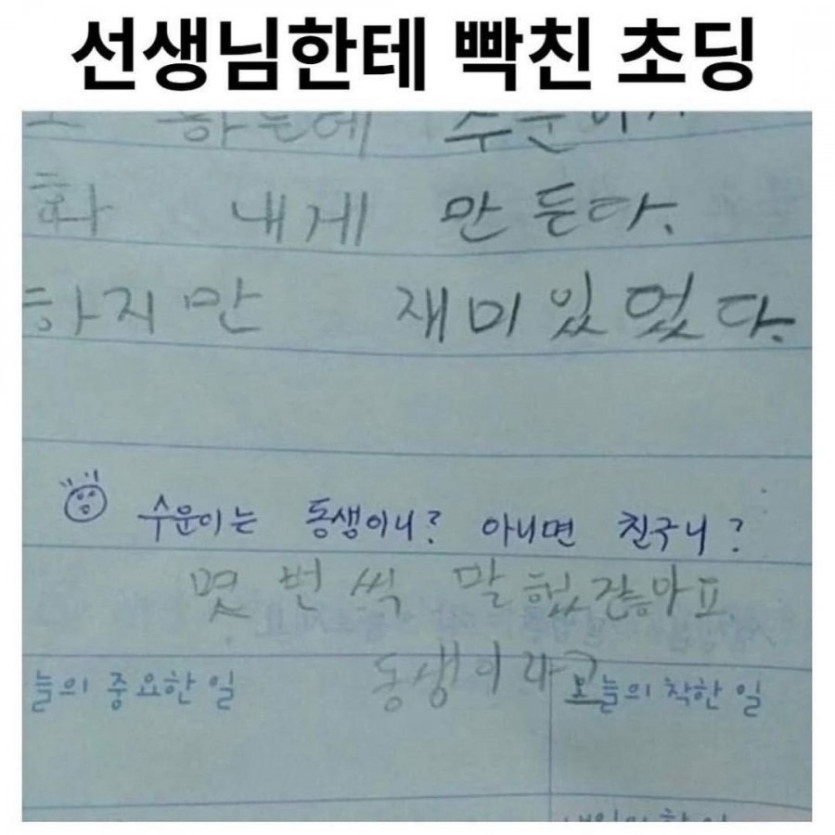 선생님한테 빡친 초딩
하는데 수운이가
화 내게 만든다.
하지만 재미있었다.
수운이는 동생이니? 아니면 친구니?
몇 번 씩 말 했잖아요
동생이라고
늘의 중요한 일 오늘의 착한 일